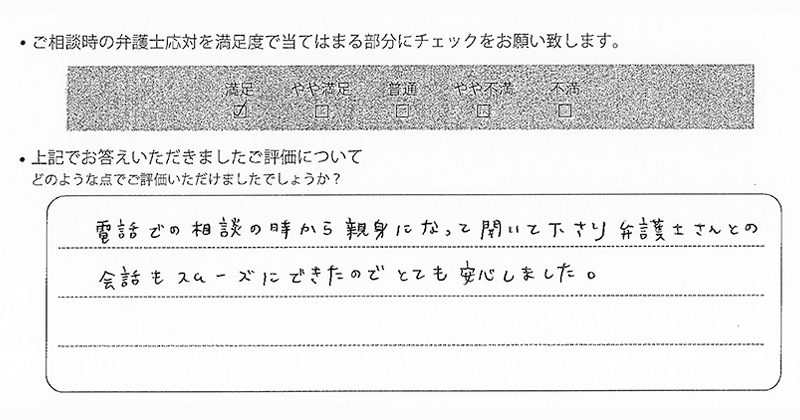 • ご相談時の弁護士応対を満足度で当てはまる部分にチェックをお願い致します。
満足 やや満足 普通 やや不満 不満
☑ □ □ □ □
• 上記でお答えいただきましたご評価について
どのような点でご評価いただけましたでしょうか？
電話での相談の時から親身になって聞いて下さり弁護士さんとの
会話もスムーズにできたのでとても安心しました。